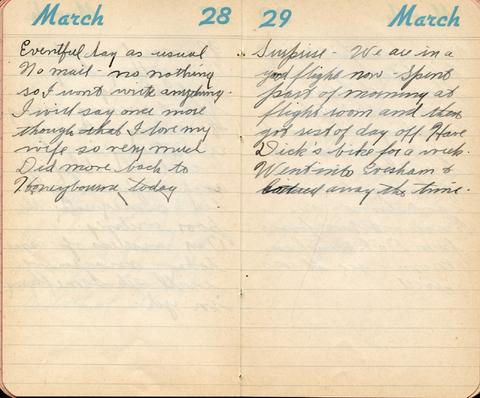 March 28
Eventful day as usual
No mail - no nothing
so I wont write anything.
I will say once more
though that I love my
wife so very much
Did move back to
Honeybourne today
29 March
Surprise - We are in a
good flight now - Spent
part of morning at
flight room and then
got rest of day off Have
Dick's bike for a week.
Went into Evesham &
away the time.